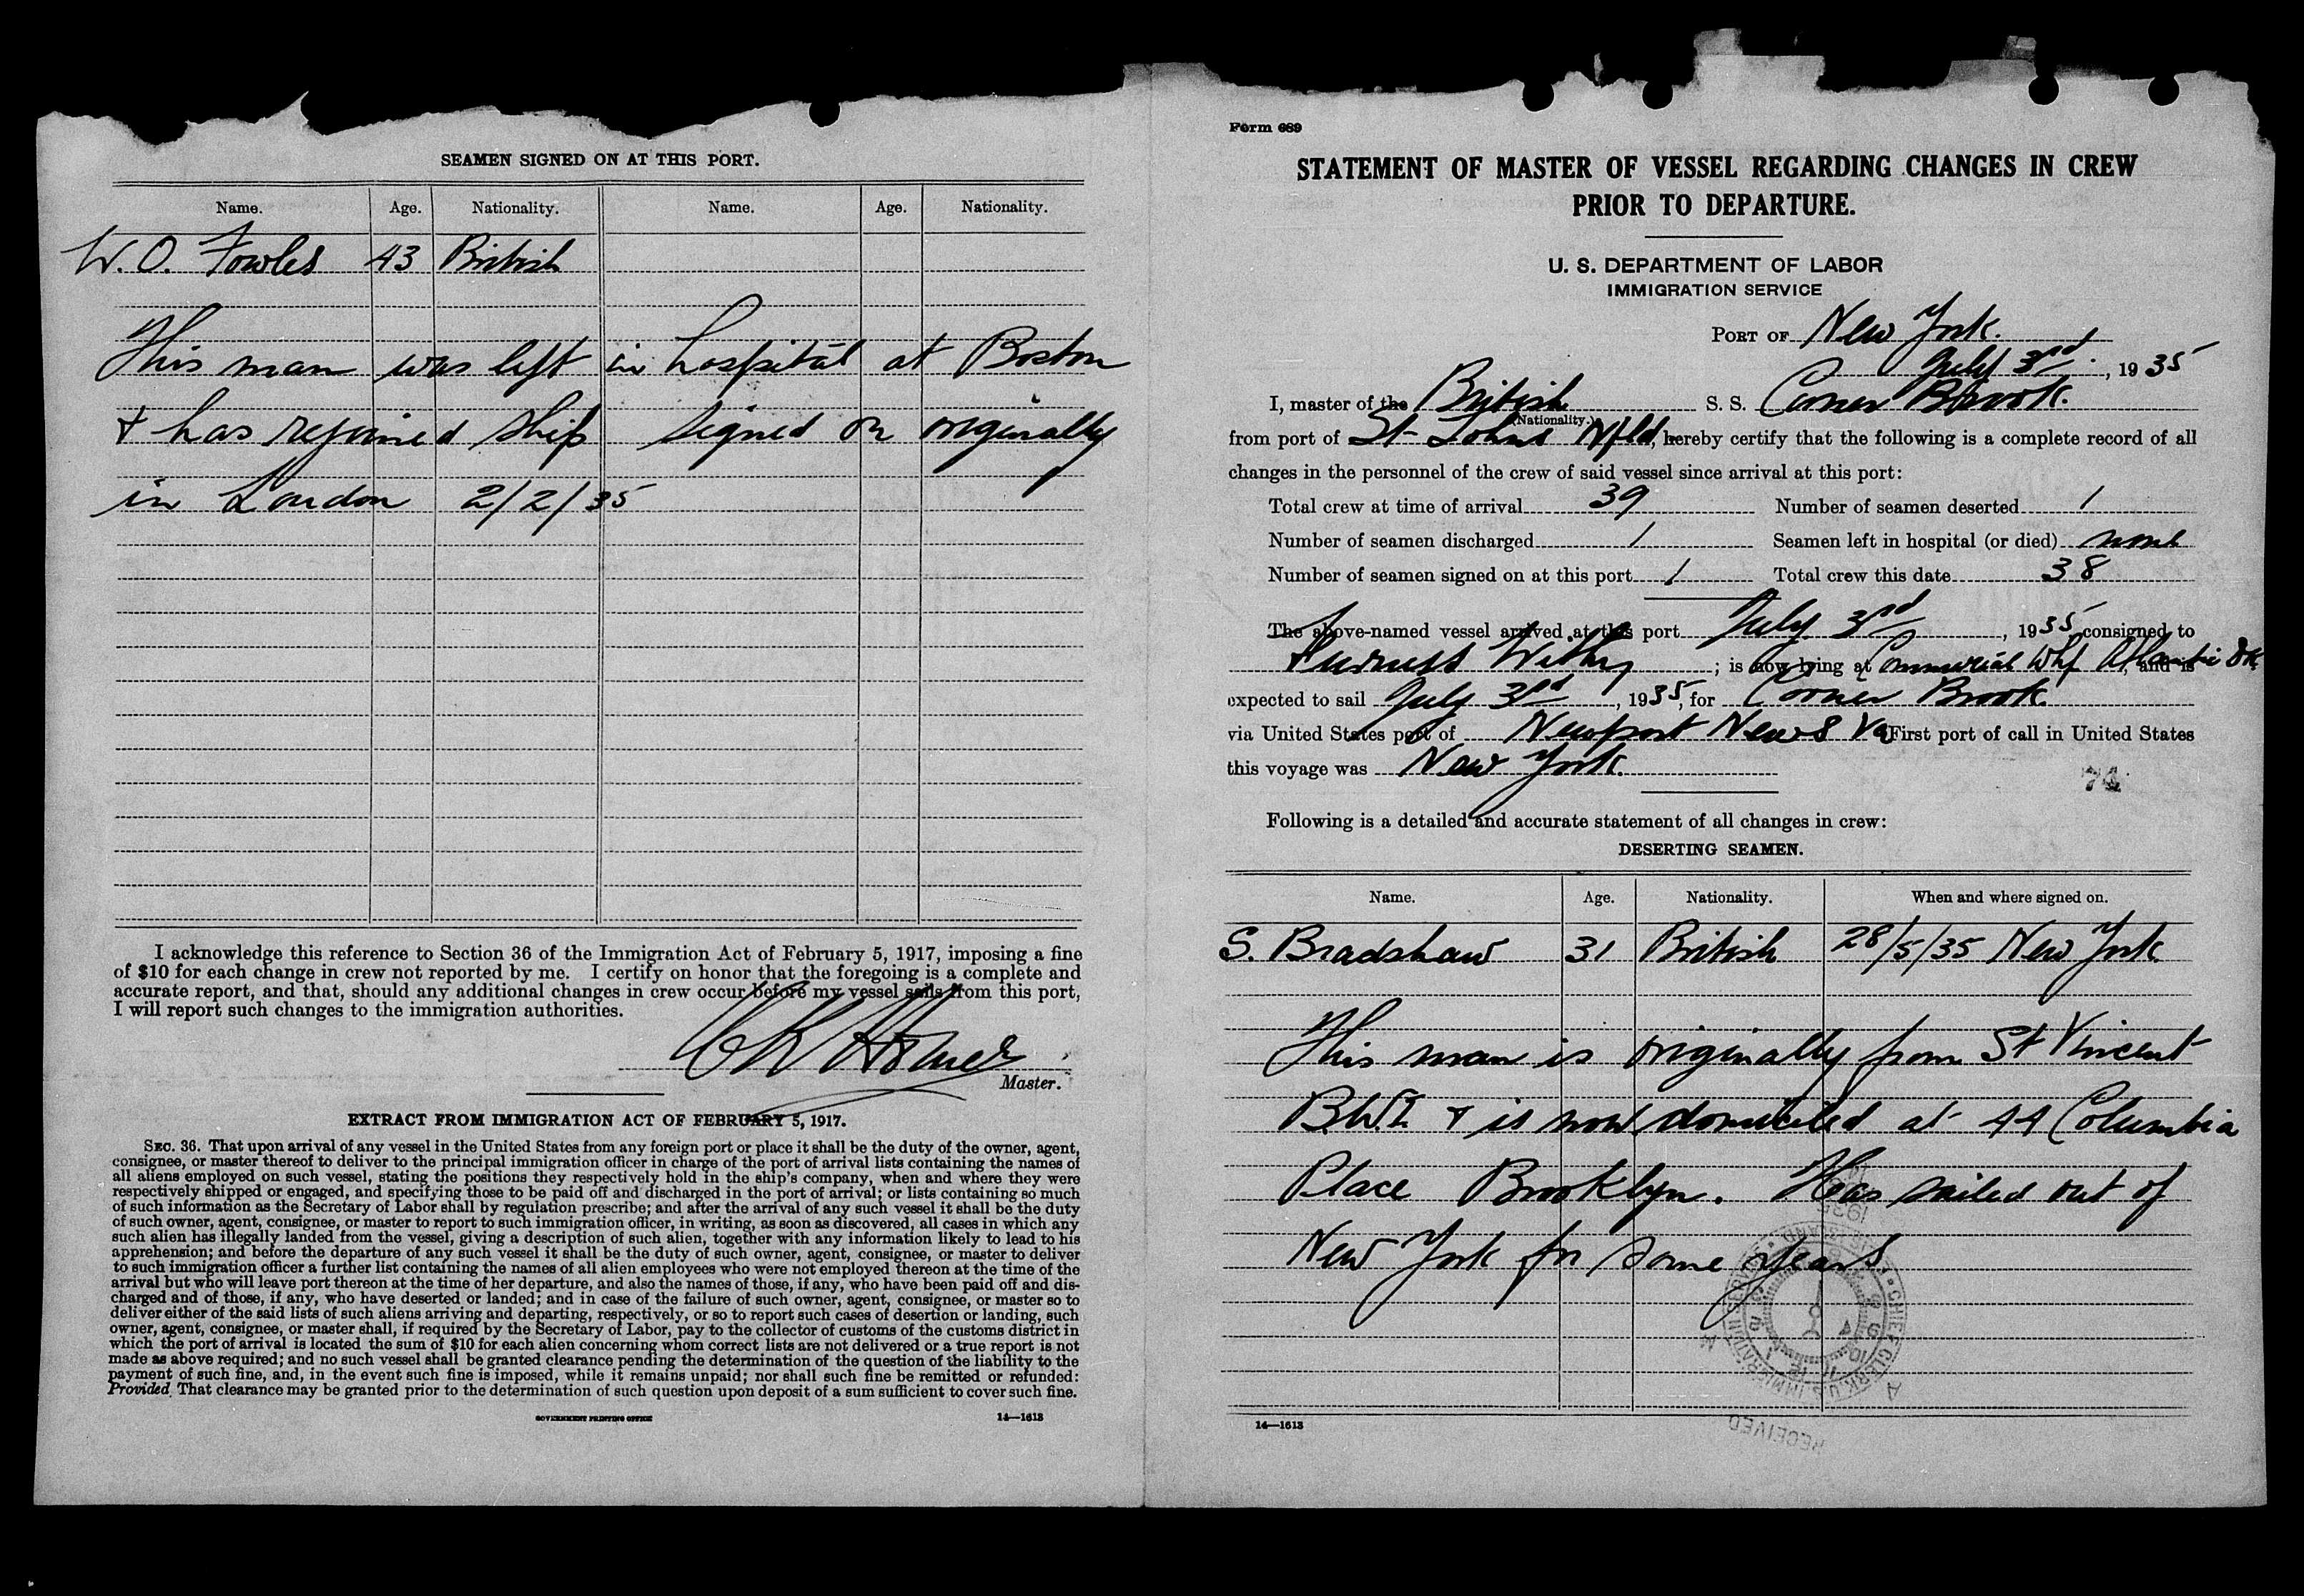 SEAMEN SIGNED ON AT THIS PORT.
Name. Age. Nationality. Name. Age. Nationality.
W. O. Fowles 43 British
This man was left in hospital at Boston
& has rejoined ship signed on originally
in London 2/2/35
I acknowledge this reference to Section 36 of the Immigration Act of February 5, 1917, imposing a fine
of $10 for each change in crew not reported by me. I certify on honor that the foregoing is a complete and
accurate report, and that, should any additional changes in crew occur before my vessel sails from this port,
I will report such changes to the immigration authorities.
Master.
EXTRACT FROM IMMIGRATION ACT OF FEBRUARY 5, 1917.
SEC. 36. That upon arrival of any vessel in the United States from any foreign port or place it shall be the duty of the owner, agent,
consignee, or master thereof to deliver to the principal immigration officer in charge of the port of arrival lists containing the names of
all aliens employed on such vessel, stating the positions they respectively hold in the ship's company, when and where they were
respectively shipped or engaged, and specifying those to be paid off and discharged in the port of arrival; or lists containing so much
of such information as the Secretary of Labor shall by regulation prescribe; and after the arrival of any such vessel it shall be the duty
of such owner, agent, consignee, or master to report to such immigration officer, in writing, as soon as discovered, all cases in which any
such alien has illegally landed from the vessel, giving a description of such alien, together with any information likely to lead to his
apprehension; and before the departure of any such vessel it shall be the duty of such owner, agent, consignee, or master to deliver
to such immigration officer a further list containing the names of all alien employees who were not employed thereon at the time of the
arrival but who will leave port thereon at the time of her departure, and also the names of those, if any, who have been paid off and dis-
charged and of those, if any, who have deserted or landed; and in case of the failure of such owner, agent, consignee, or master so to
deliver either of the said lists of such aliens arriving and departing, respectively, or so to report such cases of desertion or landing, such
owner, agent, consignee, or master shall, if required by the Secretary of Labor, pay to the collector of customs of the customs district in
which the port of arrival is located the sum of $10 for each alien concerning whom correct lists are not delivered or a true report is not
made as above required; and no such vessel shall be granted clearance pending the determination of the question of the liability to the
payment of such fine, and, in the event such fine is imposed, while it remains unpaid; nor shall such fine be remitted or refunded:
Provided, That clearance may be granted prior to the determination of such question upon deposit of a sum sufficient to cover such fine.
GOVERNMENT PRINTING OFFICE 14—1613
Form 689
STATEMENT OF MASTER OF VESSEL REGARDING CHANGES IN CREW
PRIOR TO DEPARTURE.
U. S. DEPARTMENT OF LABOR
IMMIGRATION SERVICE
PORT OF New York.
July 3rd, 1935
I, master of the British S. S. Corner Brook.
(Nationality.)
from port of St Johns Nfld, hereby certify that the following is a complete record of all
changes in the personnel of the crew of said vessel since arrival at this port:
Total crew at time of arrival 39 Number of seamen deserted 1
Number of seamen discharged 1 Seamen left in hospital (or died) none
Number of seamen signed on at this port 1 Total crew this date 38
The above-named vessel arrived at this port July 3rd, 1935 consigned to
Furness Withy; is now lying at Commercial Whf Atlantic Dk, and is
expected to sail July 3rd, 1935, for Corner Brook.
via United States port of Newport News Va First port of call in United States
this voyage was New York.
74
Following is a detailed and accurate statement of all changes in crew:
DESERTING SEAMEN.
Name. Age. Nationality. When and where signed on.
S. Bradshaw 31 British 28/5/35 New York
This man is originally from St Vincent
B.W.I. & is now domiciled at 44 Columbia
Place Brooklyn. Has sailed out of
New York for some years.
CHIEF CLERK U.S. IMMIGRATION SERVICE
RECEIVED
14—1613